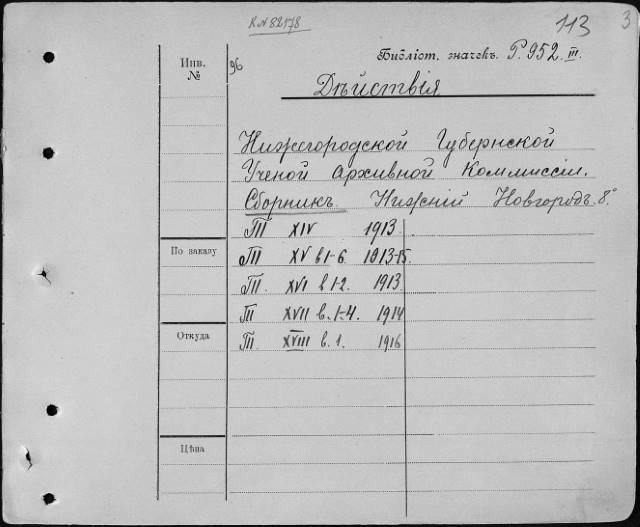 К№82178
113 3
Инв. №
96
Библіот. значекъ. Р. 952. III.
Дѣйствія
Нижегородской Губернской
Ученой Архивной Коммиссіи.
Сборникъ. Нижній Новгородъ. 8°
Т XIV 1913.
Т XV в 1-6. 1913-15.
По заказу
Т. XVI в 1-2. 1913
Т XVII в. 1-4. 1914
Откуда
Т. XVIII в. 1. 1916
Цѣна